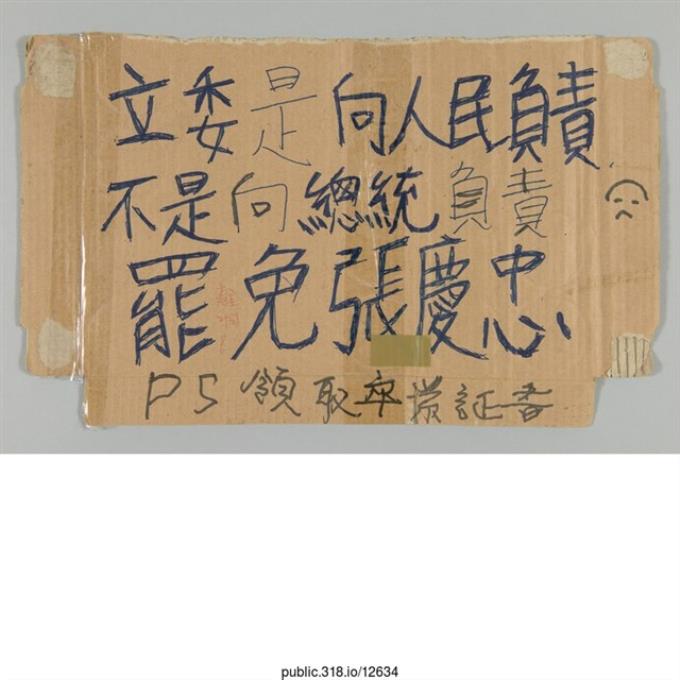 立委是向人民負責
不是向總統負責
罷免張慶忠
PS 領取卒業証書
public.318.io/12634